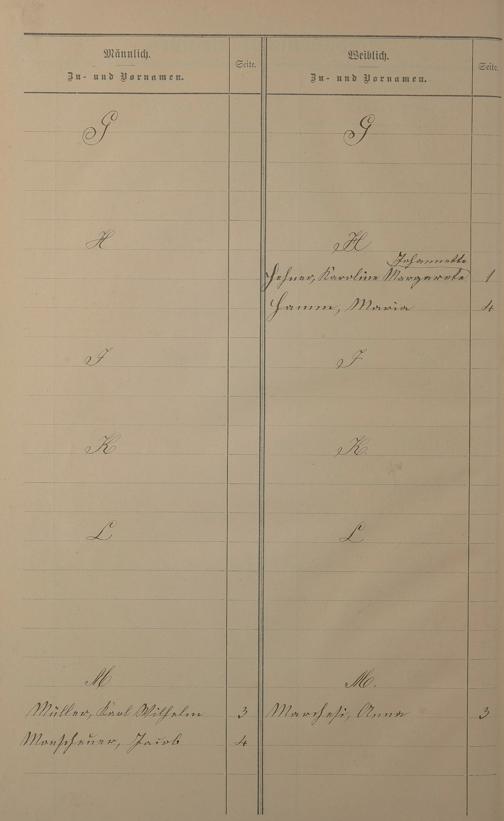 Männlich.
Zu- und Vornamen.
Seite.
G
H
I
K
L
M
Müller, Karl Wilhelm 3
Monscheuer, Jacob 4
Weiblich.
Zu- und Vornamen.
Seite.
G
H
Johannette
Hehner, Karoline Margarete 1
Hamm, Maria 4
I
K.
L
M.
Marchesi, Anna 3